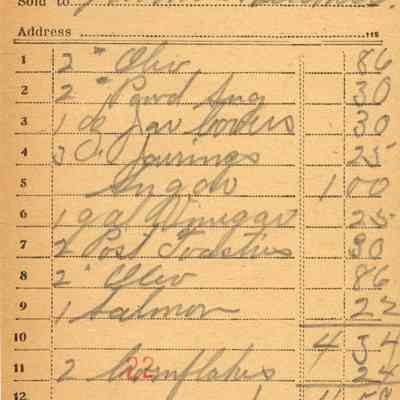 Sold to
Address 115
1 2 " Oleo 86
2 2 " Powd Sug 30
3 1 dz Jar Covers 30
4 3 dz Jar rings 25
5 Sugar 1 00
6 1 gal Vinegar 25
7 2 Post Toasties 30
8 2 " Oleo 86
9 1 Salmon 22
10 4 34
11 2 Cornflakes 24
22
12 4 58